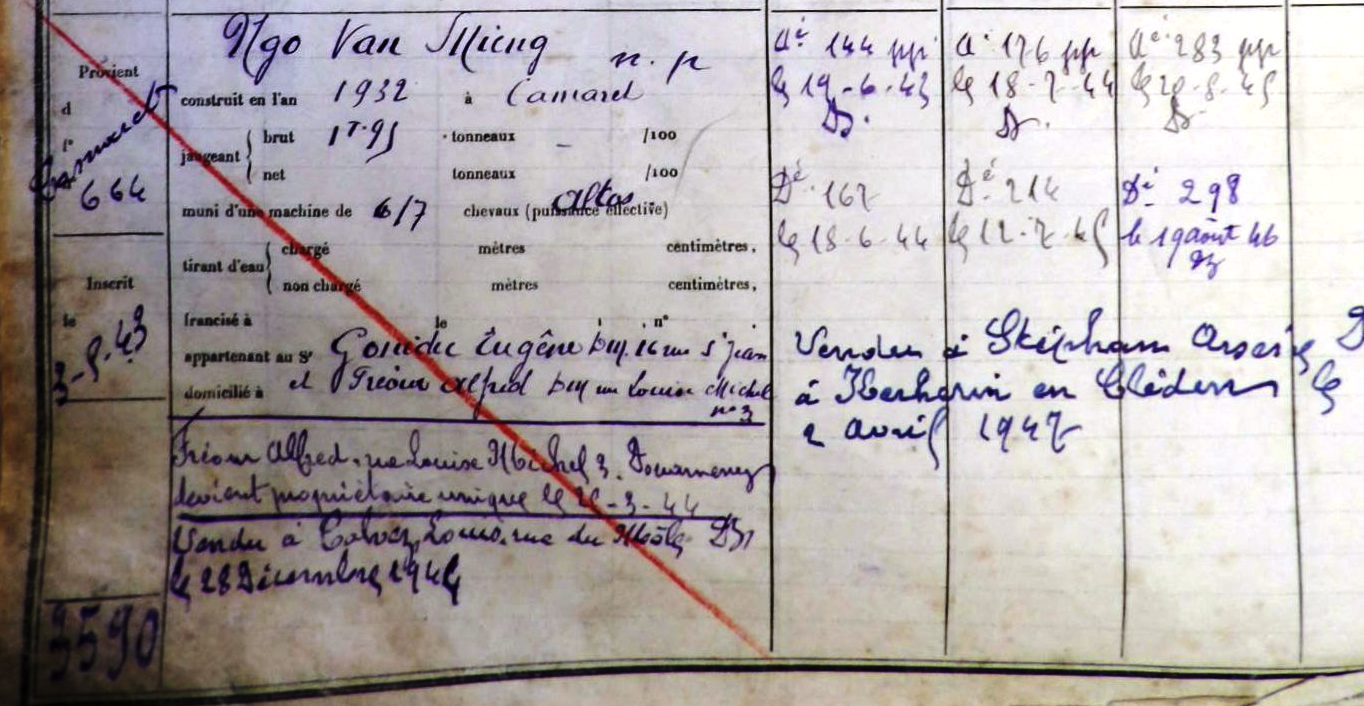 Provient
d
f°
Camaret
664
Inscrit
le
3-5-43
3590
Ngo Van Mieng n. p
construit en l'an 1932 à Camaret
jaugeant
brut 1T.95 tonneaux /100
net tonneaux /100
muni d'une machine de 6/7 chevaux (puissance effective)
tirant d'eau
chargé mètres centimètres,
non chargé mètres centimètres,
francisé à le n°
appartenant au Sr Eugène 16 rue St Jean
domicilié à et Alfred rue Louise Michel
n° 3
Alfred, rue Louise Michel 3. Douarnenez
devient propriétaire unique le -3-44
Vendu à Louis, rue du Môle Dz
le 28 Décembre 194
Aé 144 pp
le 19-6-43
Dz.
Dé 167
le 18-6-44
Aé 176 pp
le 18-7-44
Dz.
Dé 214
le 12-7-45
Aé 283 pp
le -8-45
Dz
Dé 298
le 19 août 46
Dz
Vendu à Stéphan
à en Cléden le
2 avril 1947